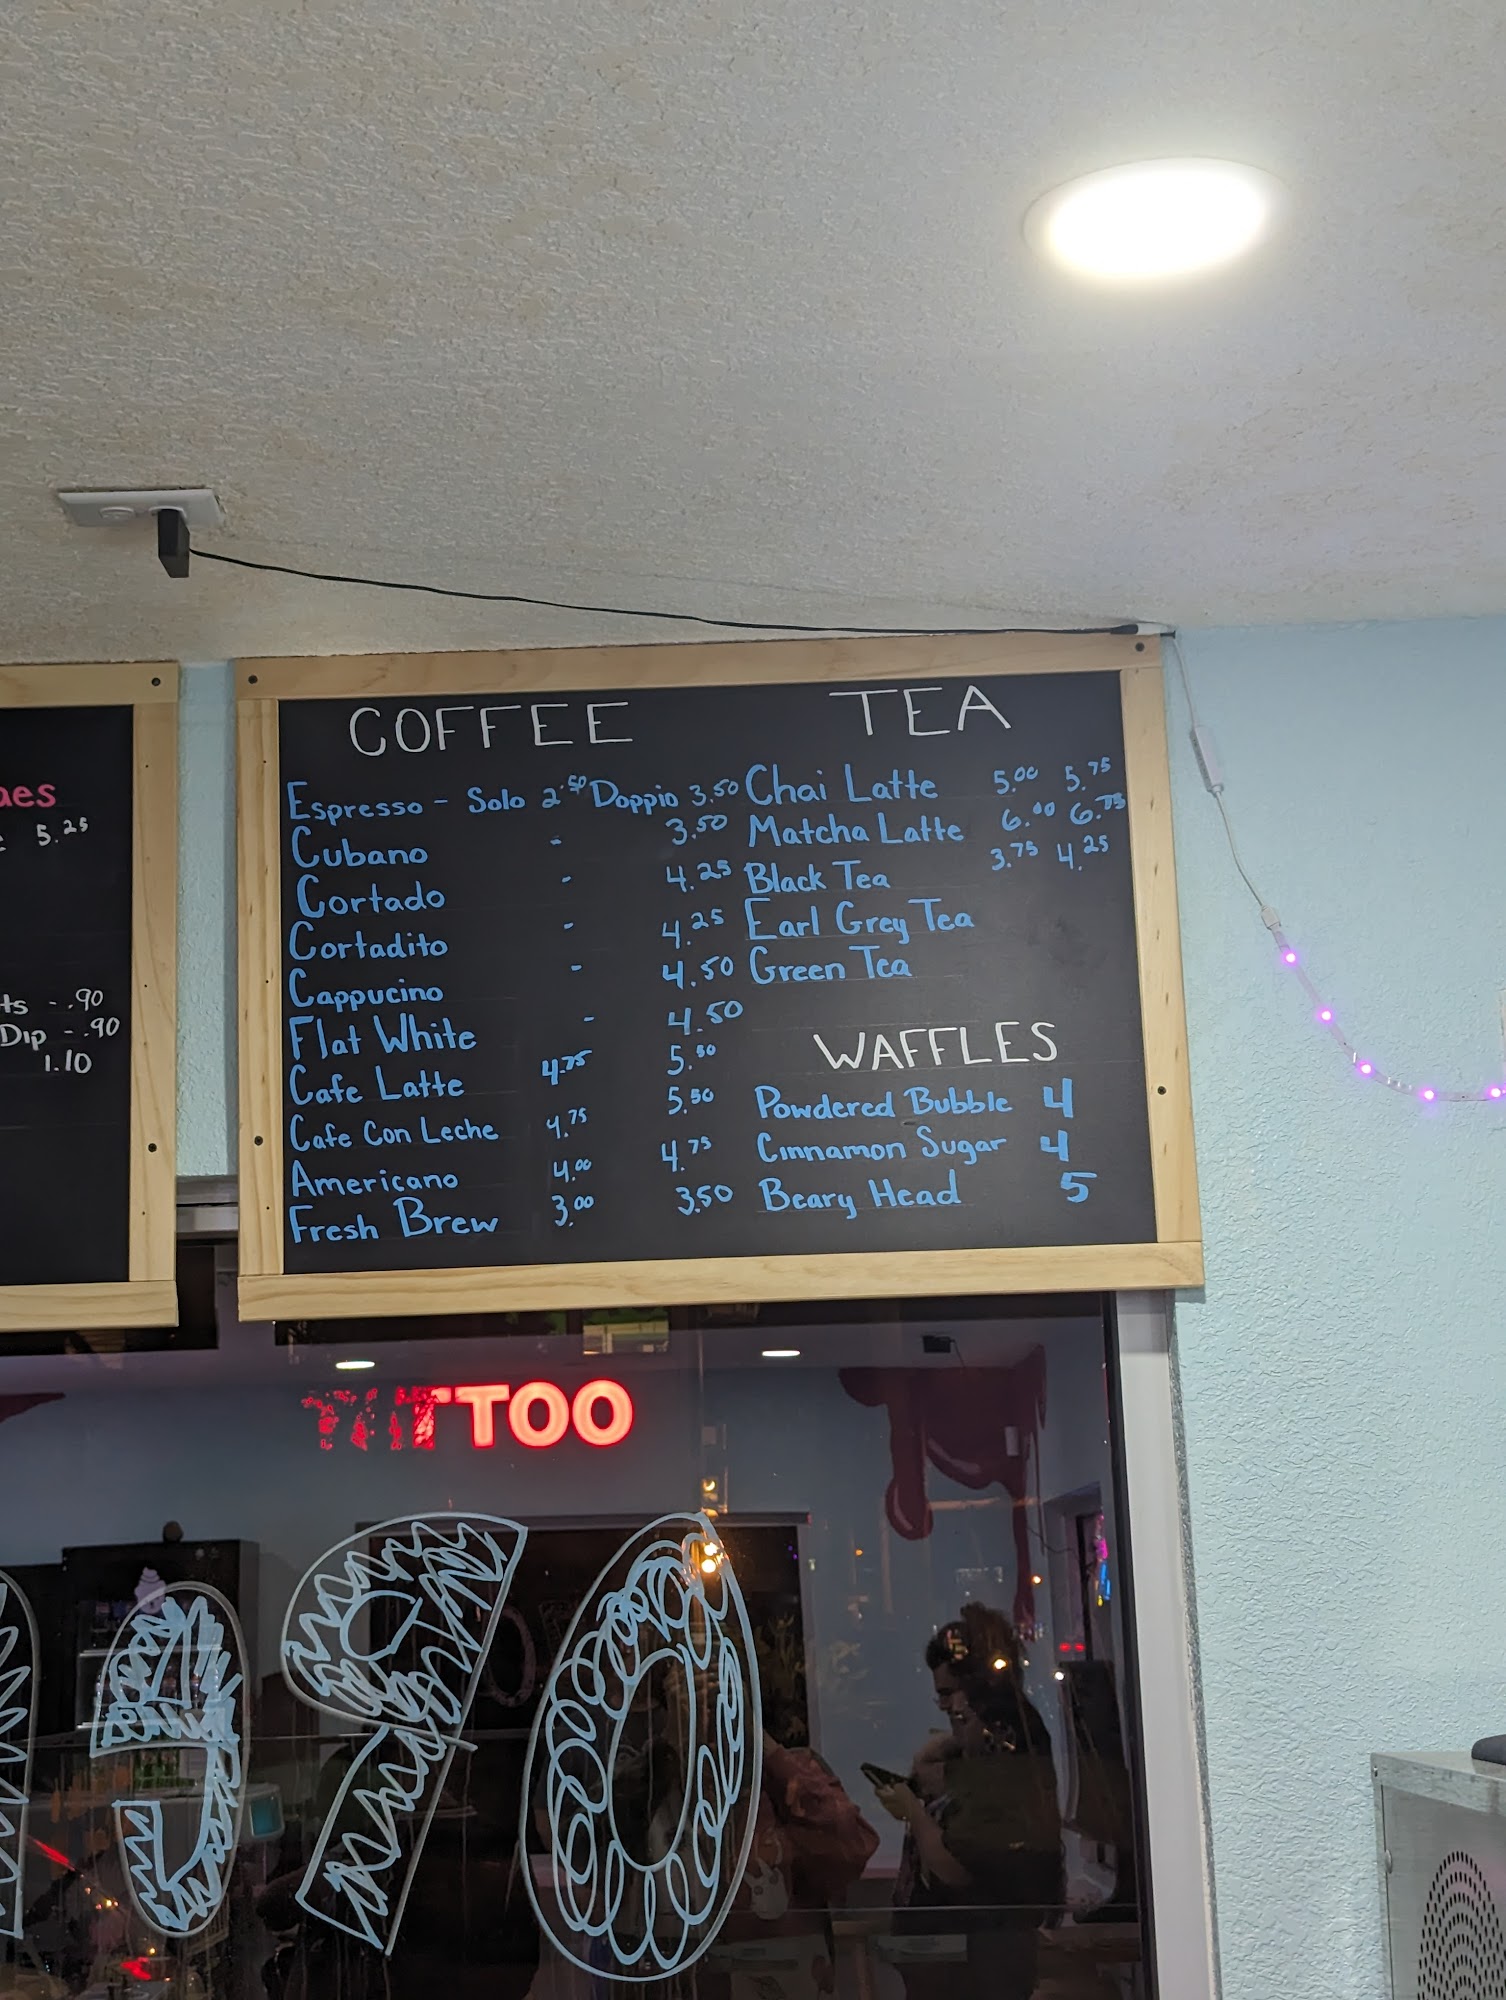 5.25
- .90
Dip - .90
1.10
COFFEE
Espresso - Solo 2.50 Doppio 3.50
Cubano - 3.50
Cortado - 4.25
Cortadito - 4.25
Cappucino - 4.50
Flat White - 4.50
Cafe Latte 4.75 5.50
Cafe Con Leche 4.75 5.50
Americano 4.00 4.75
Fresh Brew 3.00 3.50
TEA
Chai Latte 5.00 5.75
Matcha Latte 6.00 6.75
Black Tea 3.75 4.25
Earl Grey Tea
Green Tea
WAFFLES
Powdered Bubble 4
Cinnamon Sugar 4
Beary Head 5
TATTOO